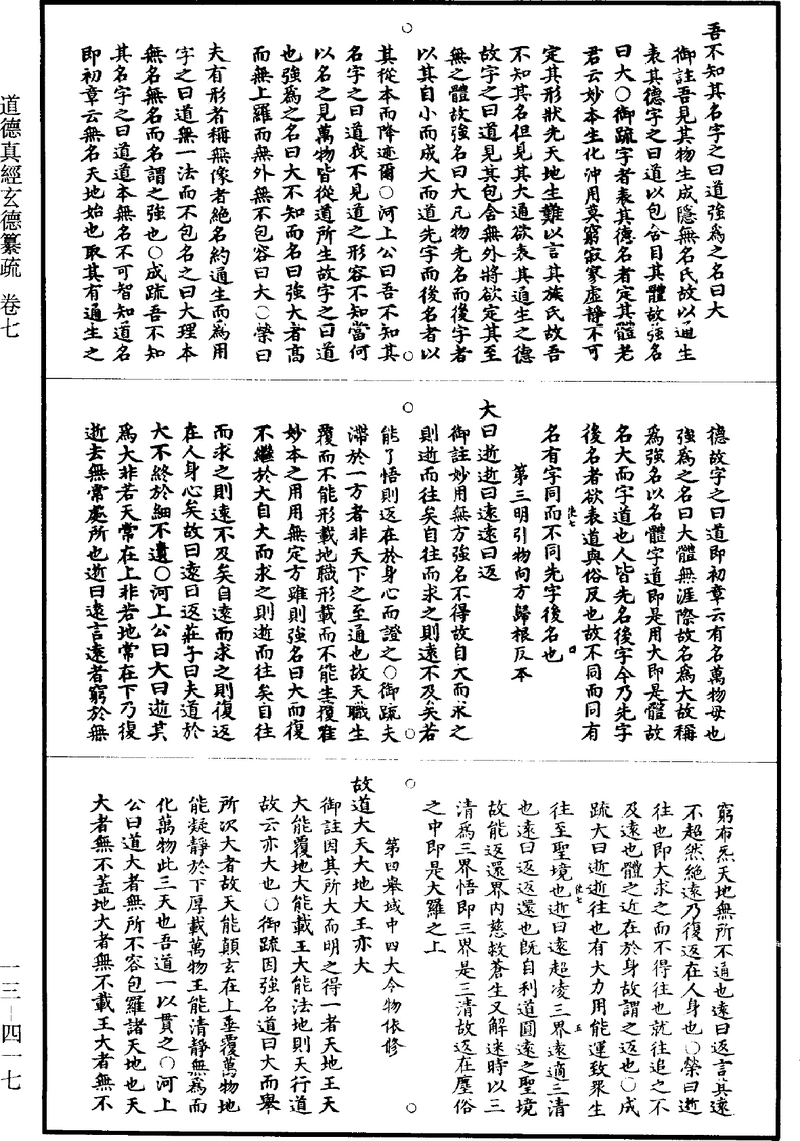 吾不知其名字之曰道強為之名曰大
御註吾見其物生成隱無名氏故以通生
表其德字之曰道以包含目其體故強名
曰大○御疏字者表其德名者定其體老
君云妙本生化沖用莫窮寂寥虛靜不可
定其形狀先天地生難以言其族氏故吾
不知其名但見其大通欲表其通生之德
故字之曰道見其包含無外將欲定其至
無之體故強名曰大凡物先名而後字者
以其自小而成大而道先字而後名者以
其從本而降迹爾○河上公曰吾不知其
名字之曰道我不見道之形容不知當何
以名之見萬物皆從道所生故字之曰道
也強為之名曰大不知而名曰強大者高
而無上羅而無外無不包容曰大○榮曰
夫有形者稱無像者絕名約通生而為用
字之曰道無一法而不包名之曰大理本
無名無名而名謂之強也○成疏吾不知
其名字之曰道道本無名不可智知道名
即初章云無名天地始也取其有通生之
德故字之曰道即初章云有名萬物母也
強為之名曰大體無涯際故名為大故稱
為強名以名體字道即是用大即是體故
名大而字道也人皆先名後字今乃先字
後名者欲表道與俗反也故不同而同有
名有字同而不同先字後名也
第三明引物向方歸根反本
大曰逝逝曰遠遠曰返
御註妙用無方強名不得故自大而求之
則逝而往矣自往而求之則遠不及矣若
能了悟則返在於身心而證之○御疏夫
滯於一方者非天下之至通也故天職生
覆而不能形載地職形載而不能生覆唯
妙本之用用無定方雖則強名曰大而復
不繼於大自大而求之則逝而往矣自往
而求之則遠不及矣自遠而求之則復返
在人身心矣故曰遠曰返莊子曰夫道於
大不終於細不遺○河上公曰大曰逝其
為大非若天常在上非若地常在下乃復
逝去無常處所也逝曰遠言遠者窮於無
窮布炁天地無所不通也遠曰返言其遠
不超然絕遠乃復返在人身也○榮曰逝
往也即大求之而不得往也就往追之不
及遠也體之近在於身故謂之返也○成
疏大曰逝逝往也有大力用能運致眾生
往至聖境也逝曰遠超凌三界遠適三清
也遠曰返返還也既自利道圓遠之聖境
故能返還界內慈救蒼生又解迷時以三
清為三界悟即三界是三清故返在塵俗
之中即是大羅之上
第四舉域中四大令物依修
故道大天大地大王亦大
御註因其所大而明之得一者天地王天
大能覆地大能載王大能法地則天行道
故云亦大也○御疏因強名道曰大而舉
所次大者故天能顛玄在上垂覆萬物地
能凝靜於下厚載萬物王能清靜無為而
化萬物此三天也吾道一以貫之○河上
公曰道大者無所不容包羅諸天地也天
大者無不蓋地大者無不載王大者無不
道德真經玄德纂疏 卷七
一三－四一七